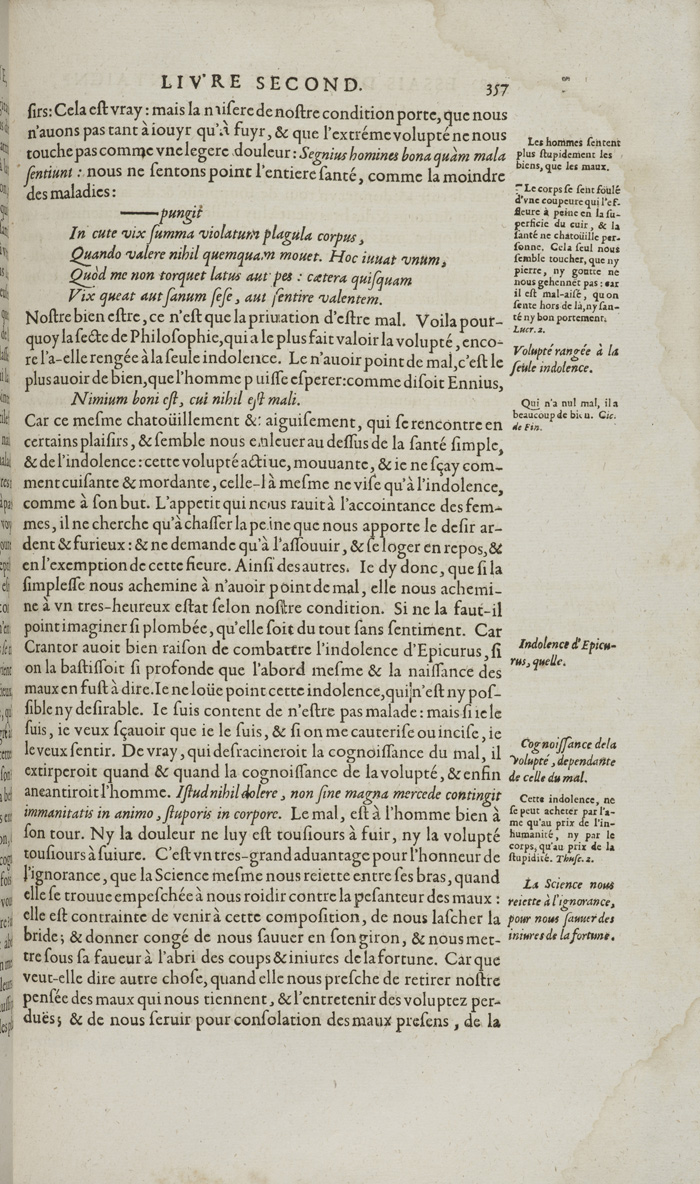 LIVRE SECOND. 357
ſirs: Cela eſt vray: mais la miſere de noſtre condition porte, que nous
n'auons pas tant à iouyr qu'à fuyr, & que l'extréme volupté ne nous
touche pas comme vne legere douleur: Segnius homines bona quàm mala
ſentiunt: nous ne ſentons point l'entiere ſanté, comme la moindre
des maladies:
——pungit
In cute vix ſumma violatum plagula corpus,
Quando valere nihil quemquam mouet. Hoc iuuat vnum,
Quòd me non torquet latus aut pes: cætera quiſquam
Vix queat aut ſanum ſeſe, aut ſentire valentem.
Noſtre bien eſtre, ce n'eſt que la priuation d'eſtre mal. Voila pour-
quoy la ſecte de Philoſophie, qui a le plus fait valoir la volupté, enco-
re l'a-elle rengée à la ſeule indolence. Le n'auoir point de mal, c'eſt le
plus auoir de bien, que l'homme puiſſe eſperer: comme diſoit Ennius,
Nimium boni eſt, cui nihil eſt mali.
Car ce meſme chatoüillement & aiguiſement, qui ſe rencontre en
certains plaiſirs, & ſemble nous enleuer au deſſus de la ſanté ſimple,
& de l'indolence: cette volupté actiue, mouuante, & ie ne ſçay com-
ment cuiſante & mordante, celle-là meſme ne viſe qu'à l'indolence,
comme à ſon but. L'appetit qui nous rauit à l'accointance des fem-
mes, il ne cherche qu'à chaſſer la peine que nous apporte le deſir ar-
dent & furieux: & ne demande qu'à l'aſſouuir, & ſe loger en repos, &
en l'exemption de cette fieure. Ainſi des autres. Ie dy donc, que ſi la
ſimpleſſe nous achemine à n'auoir point de mal, elle nous achemi-
ne à vn tres-heureux eſtat ſelon noſtre condition. Si ne la faut-il
point imaginer ſi plombée, qu'elle ſoit du tout ſans ſentiment. Car
Crantor auoit bien raiſon de combattre l'indolence d'Epicurus, ſi
on la baſtiſſoit ſi profonde que l'abord meſme & la naiſſance des
maux en fuſt à dire. Ie ne loüe point cette indolence, qui n'eſt ny poſ-
ſible ny deſirable. Ie ſuis content de n'eſtre pas malade: mais ſi ie le
ſuis, ie veux ſçauoir que ie le ſuis, & ſi on me cauteriſe ou inciſe, ie
le veux ſentir. De vray, qui deſracineroit la cognoiſſance du mal, il
extirperoit quand & quand la cognoiſſance de la volupté, & enfin
aneantiroit l'homme. Iſtud nihil dolere, non ſine magna mercede contingit
immanitatis in animo, ſtuporis in corpore. Le mal, eſt à l'homme bien à
ſon tour. Ny la douleur ne luy eſt touſiours à fuir, ny la volupté
touſiours à ſuiure. C'eſt vn tres-grand aduantage pour l'honneur de
l'ignorance, que la Science meſme nous reiette entre ſes bras, quand
elle ſe trouue empeſchée à nous roidir contre la peſanteur des maux:
elle eſt contrainte de venir à cette compoſition, de nous laſcher la
bride; & donner congé de nous ſauuer en ſon giron, & nous met-
tre ſous ſa faueur à l'abri des coups & iniures de la fortune. Car que
veut-elle dire autre choſe, quand elle nous preſche de retirer noſtre
penſée des maux qui nous tiennent, & l'entretenir des voluptez per-
duës; & de nous ſeruir pour conſolation des maux preſens, de la
Les hommes ſentent
plus ſtupidement les
biens, que les maux.
Le corps ſe ſent foulé
d'vne coupeure qui l'ef-
fleure à peine en la ſu-
perficie du cuir, & la
ſanté ne chatoüille per-
ſonne. Cela ſeul nous
ſemble toucher, que ny
pierre, ny goutte ne
nous gehennet pas: car
il eſt mal-aiſé, qu'on
ſente hors de là, ny ſan-
té ny bon portement.
Lucr. 2.
Volupté rangée à la
ſeule indolence.
Qui n'a nul mal, il a
beaucoup de bien. Cic.
de Fin.
Indolence d'Epicu-
rus, quelle.
Cognoiſſance de la
volupté, dependante
de celle du mal.
Cette indolence, ne
ſe peut acheter par l'a-
me qu'au prix de l'in-
humanité, ny par le
corps, qu'au prix de la
ſtupidité. Thuſc. 2.
La Science nous
reiette à l'ignorance,
pour nous ſauuer des
iniures de la fortune.